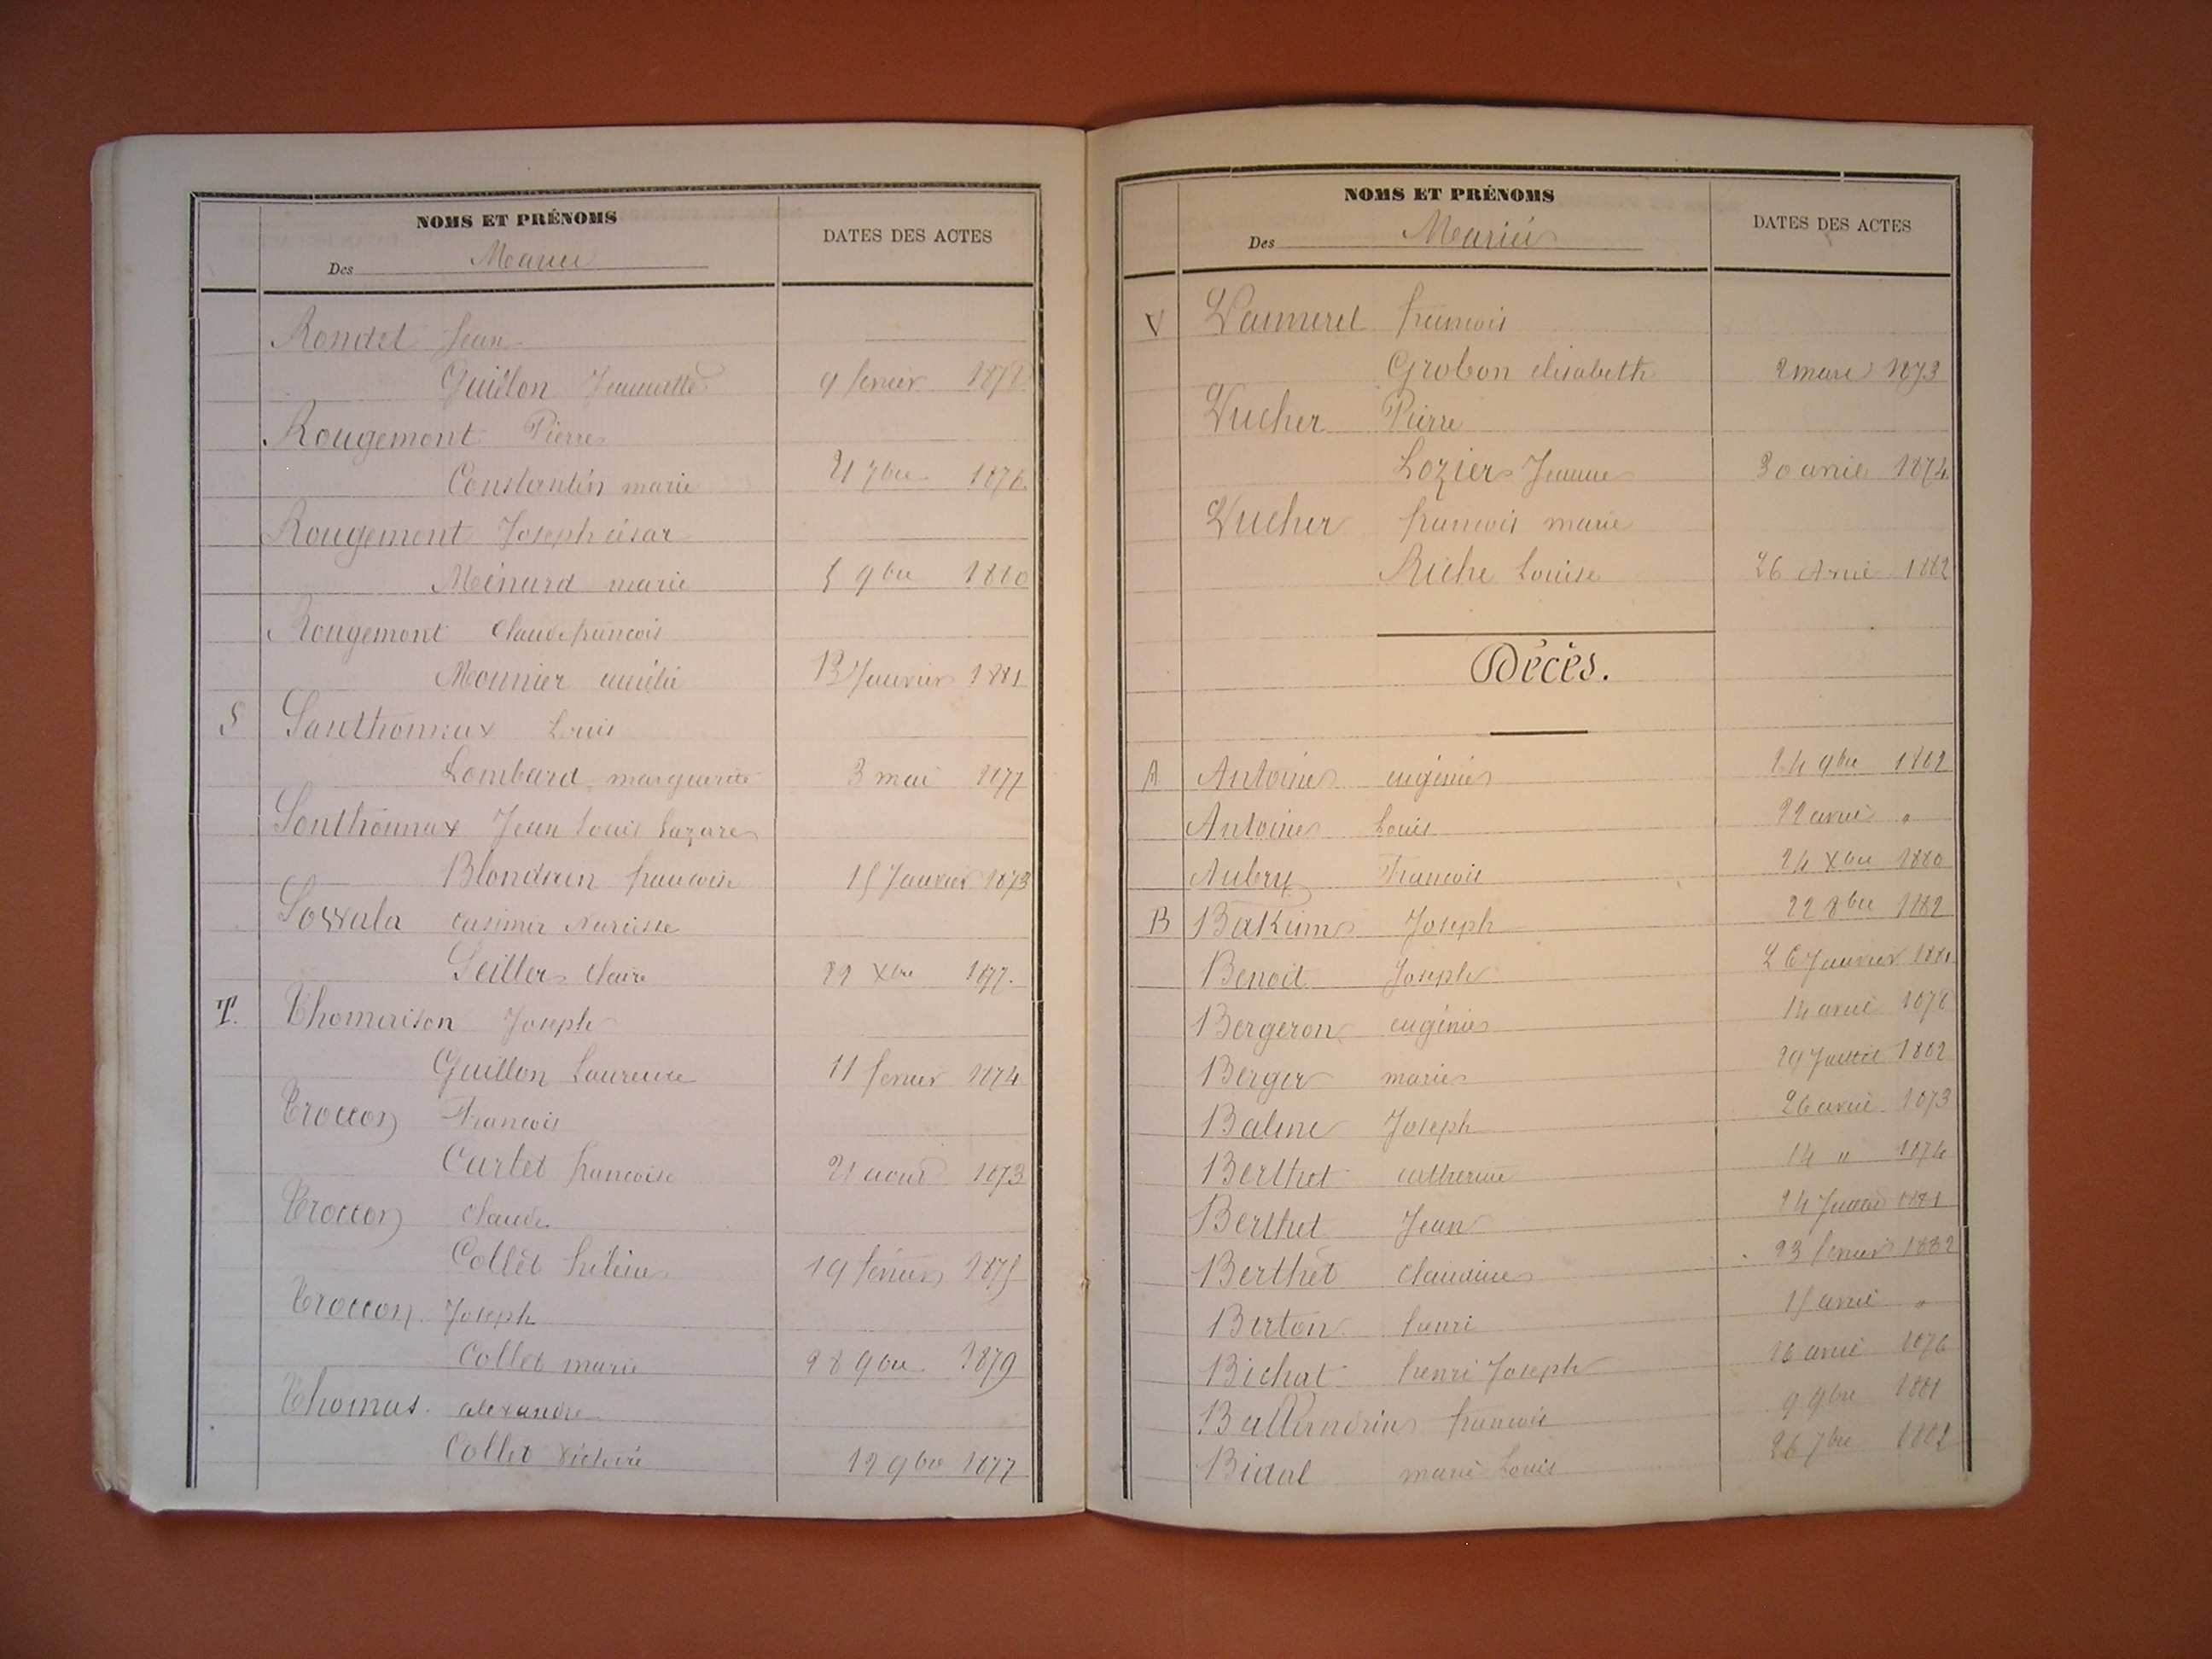 NOMS ET PRÉNOMS
Des Mariés
DATES DES ACTES
Rondet Jean
Guillon Jeannette 9 fevrier 1878
Rougemont Pierre
Constantin marie 21 7bre 1876
Rougemont Joseph césar
Ménard marie 5 9bre 1880
Rougemont Claude francois
Mounier amélie 13 Janvier 1881
S Santhonnax Louis
Lombard marguerite 3 mai 1877
Santhonnax Jean Louis Lazare
Blondean francoise 15 Janvier 1873
Sovrala casimir Narcisse
Seiller Claire 22 Xbre 1877.
T. Thomerison Joseph
Guillon Laurence 11 fevrier 1874
Troccon Francois
Carlet francoise 21 aout 1873
Troccon claude
Collet hélène 19 février 1875
Troccon Joseph
Collet marie 28 9bre 1879
Thomas alexandre
Collet victoire 12 9bre 1877
NOMS ET PRÉNOMS
Des Mariés
DATES DES ACTES
V Vaumeret francois
Grobon elisabeth 2 mars 1873
Vucher Pierre
Lozier Jeanne 30 avril 1874
Vucher francois marie
Riche Louise 26 Avril 1882
Décès.
A Antoine eugénie 24 9bre 1882
Antoine Louis 22 avril "
Aubry Francois 24 Xbre 1880
B Bakum Joseph 22 8bre 1882
Benoit Joseph 26 Janvier 1881
Bergeron eugénie 14 avril 1878
Berger marie 29 Juillet 1882
Balme Joseph 26 avril 1873
Berthet catherine 14 " 1874
Berthet Jean 24 1881
Berthet claudine 23 fevrier 1882
Berton henri 15 avril "
Bichat henri Joseph 16 avril 1876
francois 9 9bre 1881
Bidal marie Louis 26 7bre 1882